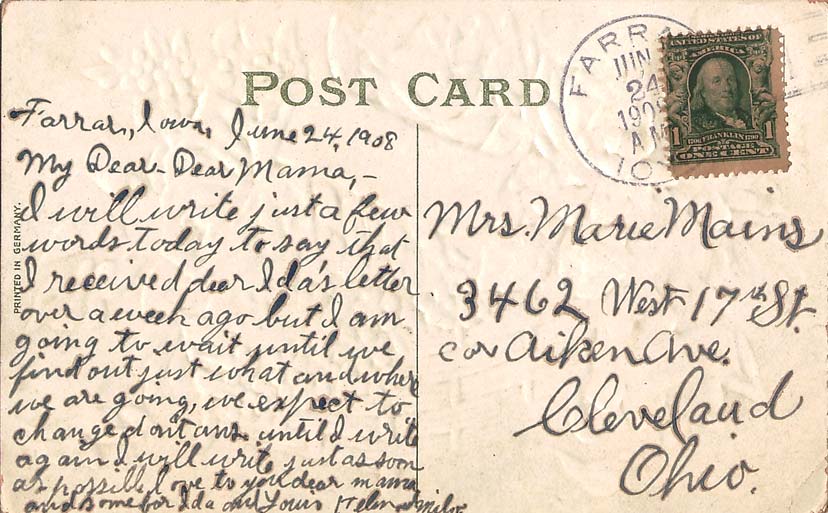 POST CARD
FARR
JUN
24
190
AM
IO
UNITED STATES OF
AMERICA
1 FRANKLIN 1
POSTAGE
ONE CENT
PRINTED IN GERMANY.
Farrar, Iowa, June 24, 1908
My Dear-Dear Mama,-
I will write just a few
words today to say that
I received dear Ida's letter
over a week ago but I am
going to wait until we
find out just what and where
we are going, we expect to
change don't ans. until I write
again I will write just as soon
as possible love to you dear mama
and some for Ida and Louis
Mrs. Marie Mains
3462 West 17th St.
cor Aiken Ave.
Cleveland
Ohio.